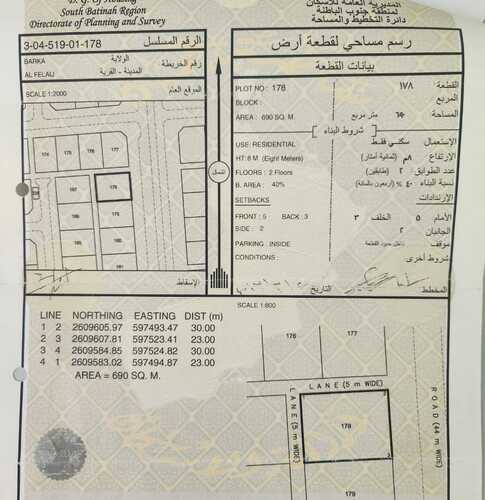 D. G. Of Housing
South Batinah Region
Directorate of Planning and Survey
المديرية العامة للاسكان
لمنطقة جنوب الباطنة
دائرة التخطيط والمساحة
3-04-519-01-178 الرقم المسلسل
BARKA الولاية
المدينة - القرية رقم الخريطة
AL FELAIJ
SCALE 1:2000 الموقع العام
رسم مساحي لقطعة أرض
بيانات القطعة
PLOT NO : 178 القطعة : ١٧٨
BLOCK : المربع
AREA : 690 SQ. M. المساحة متر مربع
شروط البناء
USE: RESIDENTIAL الإستعمال سكني فقط
HT: 8 M (Eight Meters) الإرتفاع ٨م (ثمانية أمتار)
FLOORS : 2 Floors عدد الطوابق ٢ (طابقين)
B. AREA : 40% نسبة البناء ٤٠ % (أربعون بالمائة)
SETBACKS الإرتدادات
FRONT : 5 BACK : 3 الأمام ٥ الخلف ٣
SIDE : 2 الجانبان ٢
PARKING : INSIDE موقف داخل حدود القطعة
CONDITIONS : شروط أخرى
المخطط التاريخ
175 176 177
197 178
179
180
181
الشمال
الإسقاط
SCALE 1:600
LINE NORTHING EASTING DIST (m)
1 2 2609605.97 597493.47 30.00
2 3 2609607.81 597523.41 23.00
3 4 2609584.85 597524.82 30.00
4 1 2609583.02 597494.87 23.00
AREA = 690 SQ. M.
176 177
LANE (5 m WIDE)
LANE (5 m WIDE)
178
ROAD (44 m WIDE)
179